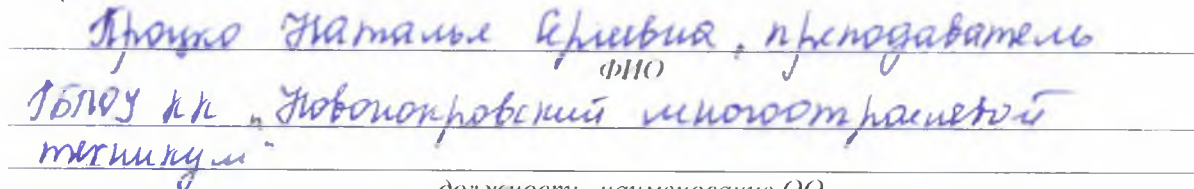 Процко Наталья Сергеевна, преподаватель
ФИО
ГБПОУ КК „Новопокровский многоотраслевой
техникум"
должность, наименование ОО